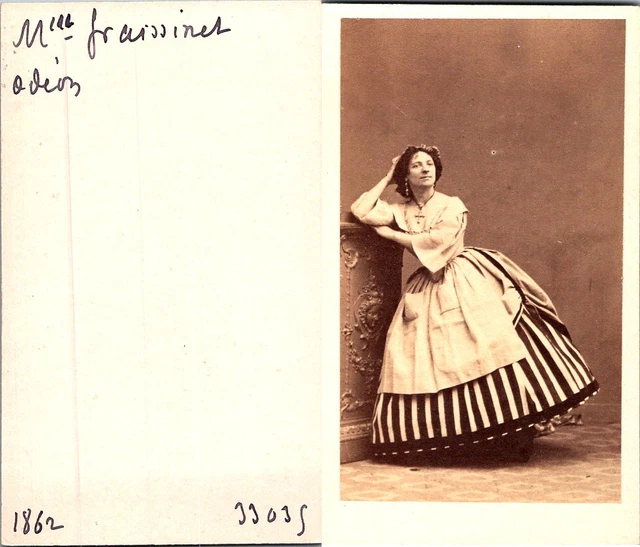 Mlle fraissinet
odéon
1862
33035